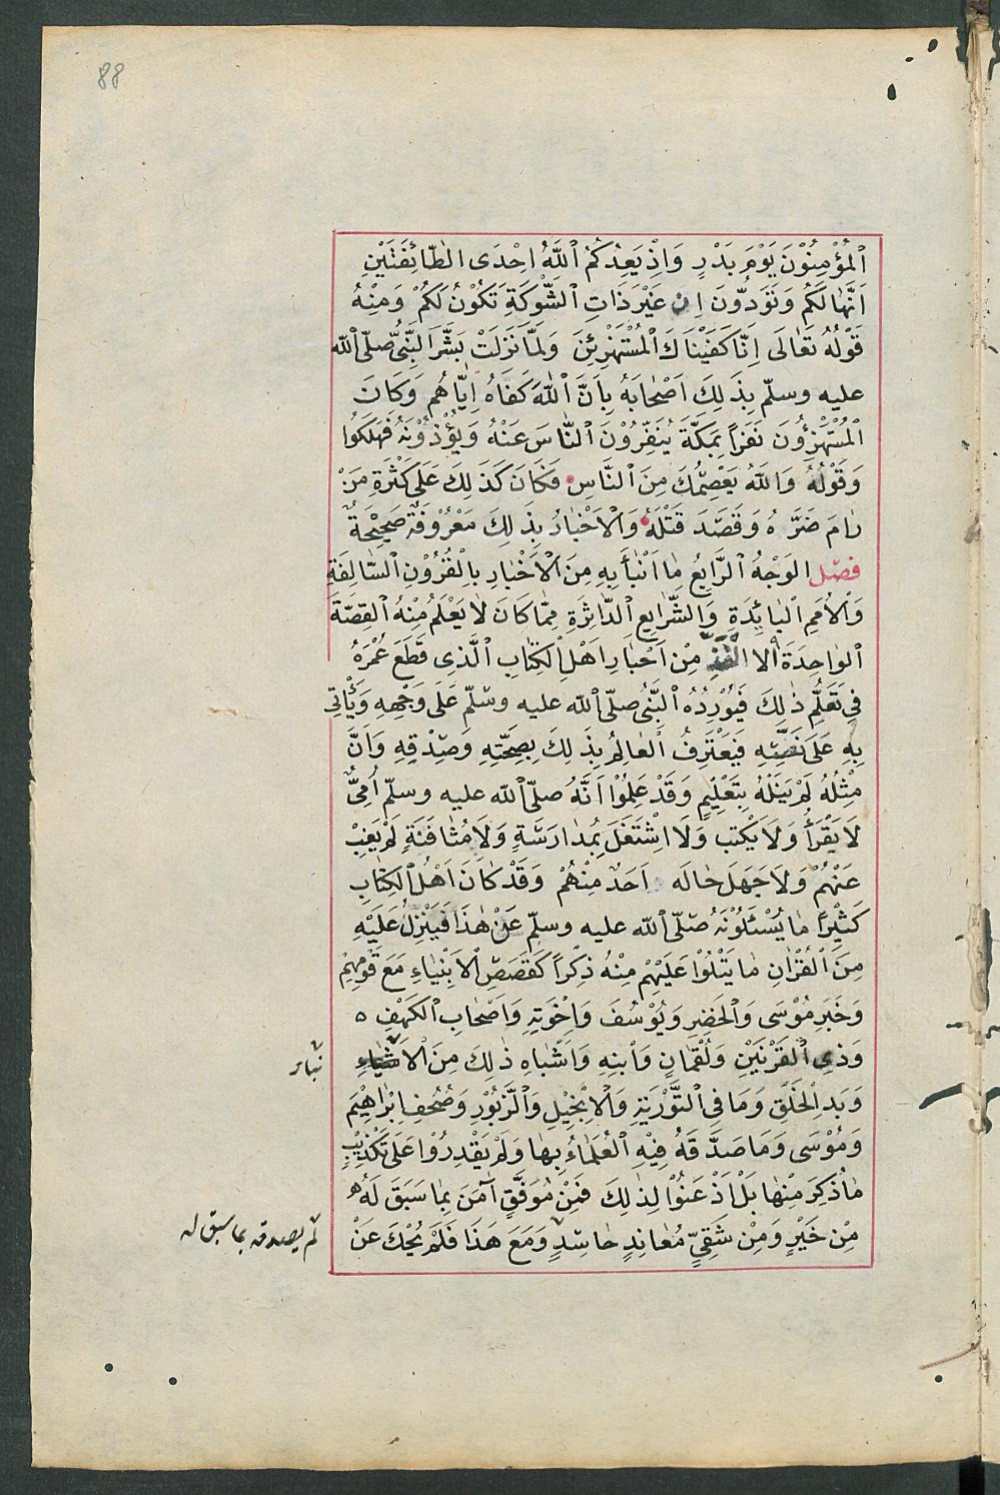 88
اَلْمُؤْمِنُوْنَ يَوْمَ بَدْرٍ وَاِذْ يَعِدُكُمُ ٱللَّهُ اِحْدَى الطَّائِفَتَيْنِ
اَنَّهَا لَكُمْ وَتَوَدُّونَ اِنَّ غَيْرَ ذَاتِ ٱلشَّوْكَةِ تَكُوْنُ لَكُمْ وَمِنْهُ
قَوْلُهُ تَعَالَى اِنَّا كَفَيْنَاكَ ٱلْمُسْتَهْزِئِنَ وَلَمَّا نَزَلَتْ بَشَّرَ النَّبِيُّ صلّى ٱلله
عليه وسلّم بِذَلِكَ اَصْحَابَهُ بِاَنَّ ٱللَّهَ كَفَاهُ اِيَّاهُمْ وَكَانَ
الْمُسْتَهْزِؤُنَ نَفَرًا بِمَكَّةَ يُنَفِّرُوْنَ ٱلنَّاسَ عَنْهُ وَيُؤْذُوْنَهُ فَهَلَكُوا
وَقَوْلُهُ وَاللَّهُ يَعْصِمُكَ مِنَ ٱلنَّاسِ فَكَانَ كَذَلِكَ عَلَى كَثْرَةِ مَنْ
رَامَ ضَرَّهُ وَقَصَدَ قَتْلَهُ وَالْاَخْبَارُ بِذَلِكَ مَعْرُوْفَةٌ صَحِيْحَةٌ
فصْل الوَجْهُ ٱلرَّابِعُ مَا اَنْبَأَ بِهِ مِنَ ٱلْاَخْبَارِ بِالْقُرُوْنِ ٱلسَّالِفَةِ
وَالْاُمَمِ ٱلْبَائِدَةِ وَالشَّرَايِعِ ٱلدَّاثِرَةِ مِمَّا كَانَ لَا يَعْلَمُ مِنْهُ الْقِصَّةَ
ٱلوَاحِدَةَ اِلَّا الْفَذُّ مِنْ اَحْبَارِ اَهْلِ الْكِتَابِ ٱلَّذِى قَطَعَ عُمْرَهُ
فِى تَعَلُّمِ ذٰلِكَ فَيُوْرِدُهُ ٱلنَّبِىُّ صلّى ٱلله عليه وسلّم عَلَى وَجْهِهِ وَيَأْتِى
بِهِ عَلَى نَصِّهِ فَيَعْتَرِفُ ٱلْعَالِمُ بِذَلِكَ بِصِحَّتِهِ وَصِدْقِهِ وَاَنَّ
مِثْلَهُ لَمْ يَنَلْهُ بِتَعْلِيْمٍ وَقَدْ عَلِمُوْا اَنَّهُ صلّى ٱلله عليه وسلّم اُمِّىٌّ
لَا يَقْرَأُ وَلَا يَكْتُب وَلَا اشْتَغَلَ بِمُدَارَسَةٍ وَلَا مُثَافَنَةٍ لَمْ يَغِبْ
عَنْهُمْ وَلَا جَهِلَ حَالَه اَحَدٌ مِنْهُمْ وَقَدْ كَانَ اَهْلُ ٱلْكِتَابِ
كَثِيْرًا مَا يَسْئَلُوْنَهُ صلّى ٱلله عليه وسلّم عَنْ هٰذَا فَيَنْزِلُ عَلَيْهِ
مِنَ ٱلْقُرْاٰنِ مَا يَتْلُوْا عَلَيْهِمْ مِنْهُ ذِكْرًا كَقَصَصِ ٱلْاَنْبِيَاءِ مَعَ قَوْمِهِمْ
وَخَبَرِ مُوْسَى وَالْخَضِرِ وَيُوْسُفَ وَاِخْوَتِهِ وَاَصْحَابِ ٱلْكَهْفِ ه
وَذِى ٱلْقَرْنَيْنِ وَلُقْمَانِ وَابْنِهِ وَاَشْبَاهِ ذٰلِكَ مِنَ ٱلْاَنْبَاءِ
وَبَدِ الْخَلْقِ وَمَا فِى ٱلتَّوْرٰيةِ وَالْاِنْجِيْلِ وَالزَّبُوْرِ وَصُحُفِ اِبْرَاهِيْمَ
وَمُوْسَى وَمَا صَدَّقَهُ فِيْهِ ٱلْعُلَمَاءُ بِهَا وَلَمْ يَقْدِرُوْا عَلَى تَكْذِيْبِ
مَا ذُكِرَ مِنْهَا بَلْ اَذْعَنُوْا لِذٰلِكَ فَمِنْ مُوَفَّقٍ اٰمَنَ بِمَا سَبَقَ لَهُ
مِنْ خَيْرٍ وَمِنْ شَقِيٍّ مُعَانِدٍ حَاسِدٍ وَمَعَ هَذَا فَلَمْ يُحْكَ عَنْ
لم يصدقه بما سبق له